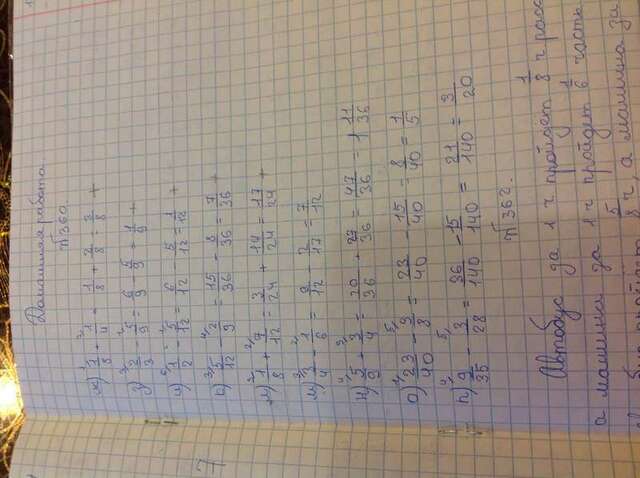 Домашняя работа.
№360
ж) 1/8 + 1/4 = 1/8 + 2/8 = 3/8 +
з) 2/3 - 5/9 = 6/9 - 5/9 = 1/9 +
и) 1/2 - 5/12 = 6/12 - 5/12 = 1/12 +
к) 5/12 - 2/9 = 15/36 - 8/36 = 7/36 +
м) 3/4 - 1/6 = 9/12 - 2/12 = 7/12
н) 5/9 + 3/4 = 20/36 + 27/36 = 47/36 = 1 11/36
о) 23/40 - 3/8 = 23/40 - 15/40 = 8/40 = 1/5
п) 9/35 - 3/28 = 36/140 - 15/140 = 21/140 = 3/20
№362.
Автобус за 1 ч пройдет 1/8 ч расс
а машина за 1 ч пройдет 1/6 часть
5/8 ч, а машина за
7